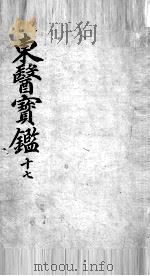 東醫寶鑑
十七
mtoou.info